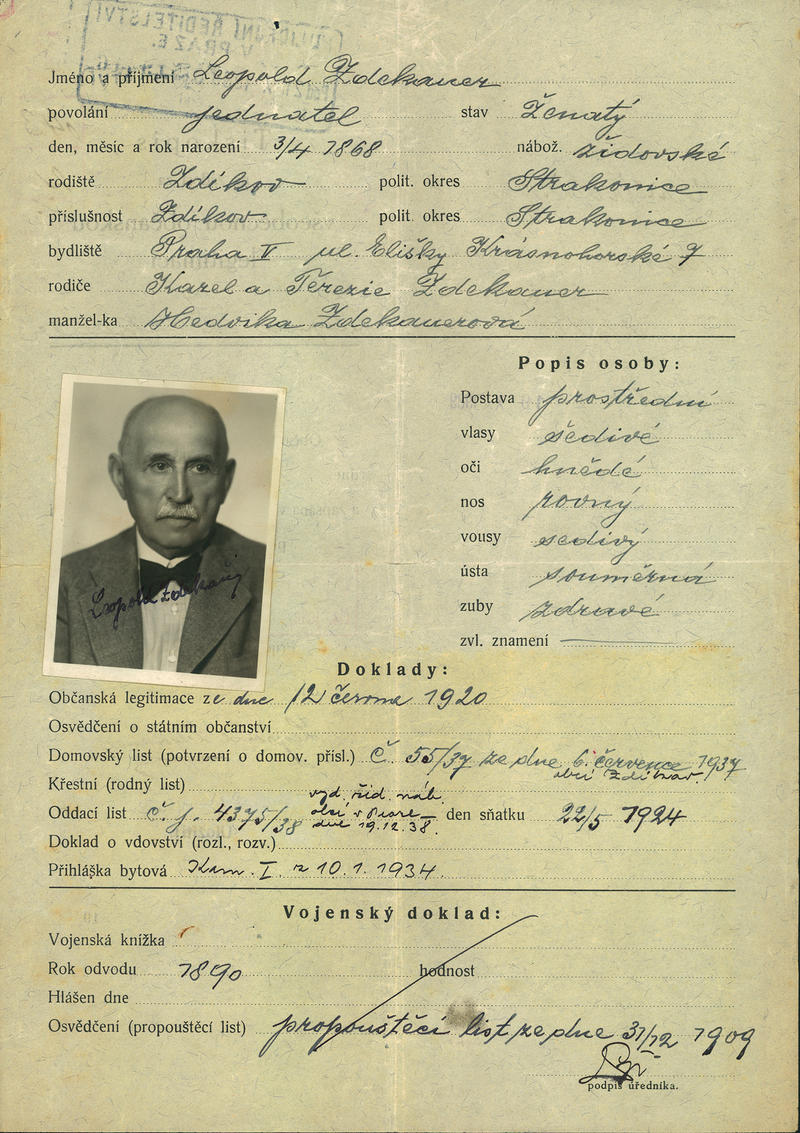 ŘEDITELSTVÍ
V PRAZE.
Jméno a příjmení Leopold Zdekauer
povolání jednatel stav ženatý
den, měsíc a rok narození 3/4 1868 nábož. židovské
rodiště Zdíkov polit. okres Strakonice
příslušnost Zdíkov polit. okres Strakonice
bydliště Praha V ul. Elišky Krásnohorské 7
rodiče Karel a Terezie Zdekauer
manžel-ka Hedvika Zdekauerová
Popis osoby:
Postava prostřední
vlasy šedivé
oči hnědé
nos rovný
vousy šedivý
ústa souměrná
zuby zdravé
zvl. znamení
Leopold Zdekauer
Doklady:
Občanská legitimace ze dne 12 června 1920
Osvědčení o státním občanství
Domovský list (potvrzení o domov. přísl.) Č. 55/37 ze dne 6. července 1937
obcí Zdíkov.
Křestní (rodný list)
Oddací list č. j. 4375/38 vyd. žid. náb. obcí v Praze dne 19.12.38. den sňatku 22/5 1924
Doklad o vdovství (rozl., rozv.)
Přihláška bytová Kom. I. z 10.1.1934.
Vojenský doklad:
Vojenská knížka
Rok odvodu 1890 hodnost
Hlášen dne
Osvědčení (propouštěcí list) propouštěcí list ze dne 31/12 1909
podpis úředníka.